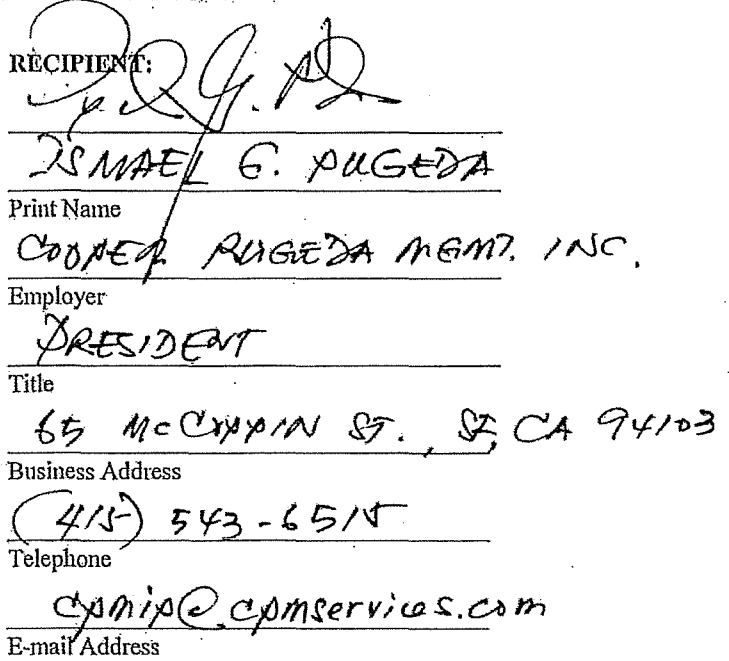 RECIPIENT:
ISMAEL G. PUGEDA
Print Name
COOPER PUGEDA MGMT. INC.
Employer
PRESIDENT
Title
65 McCOPPIN ST., SF, CA 94103
Business Address
(415) 543-6515
Telephone
cpmip@cpmservices.com
E-mail Address